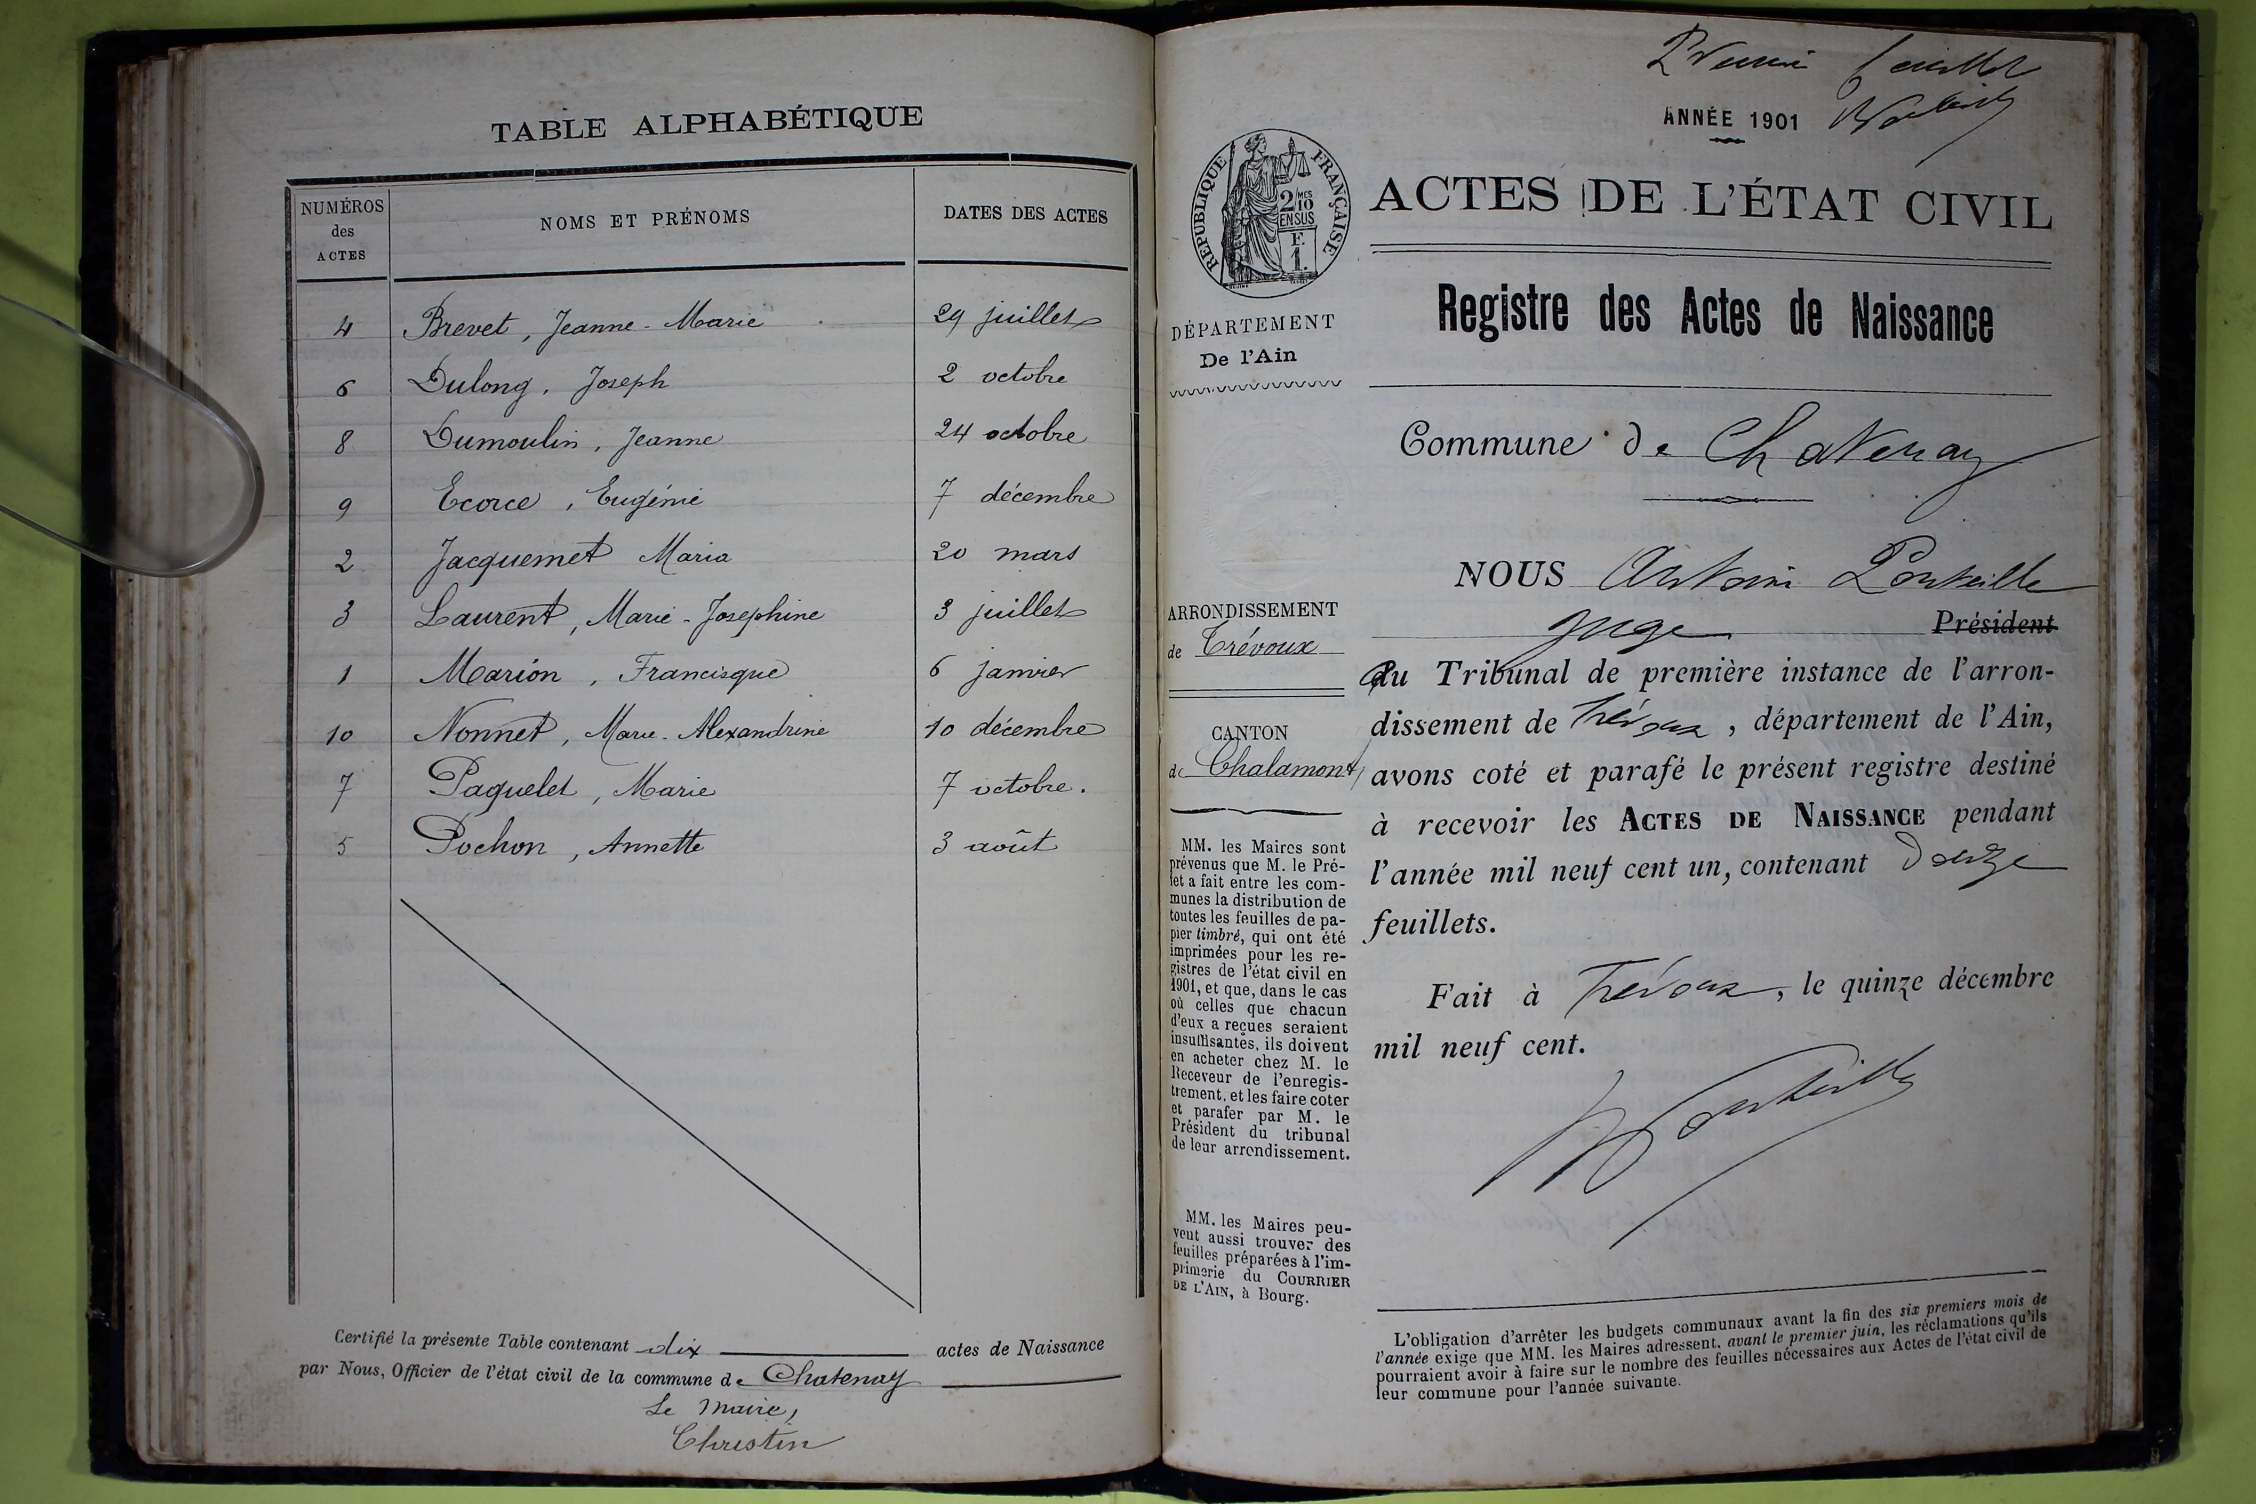 TABLE ALPHABÉTIQUE
NUMÉROS des ACTES
NOMS ET PRÉNOMS
DATES DES ACTES
4 Brevet, Jeanne-Marie 29 juillet
6 Dulong, Joseph 2 octobre
8 Dumoulin, Jeanne 24 octobre
9 Ecorce, Eugénie 7 décembre
2 Jacquemet Maria 20 mars
3 Laurent, Marie-Josephine 3 juillet
1 Marion, Francisque 6 janvier
10 Nonnet, Marie-Alexandrine 10 décembre
7 Paquelet, Marie 7 octobre.
5 Pochon, Annette 3 août
Certifié la présente Table contenant dix actes de Naissance
par Nous, Officier de l'état civil de la commune de Chatenay
Le Maire,
Christin
Premier feuillet
ANNÉE 1901
RÉPUBLIQUE FRANÇAISE
2/10 MES
EN SUS
F.
1.
ACTES DE L'ÉTAT CIVIL
Registre des Actes de Naissance
DÉPARTEMENT
De l'Ain
ARRONDISSEMENT
de Trévoux
CANTON
de Chalamont
MM. les Maires sont
prévenus que M. le Pré-
fet a fait entre les com-
munes la distribution de
toutes les feuilles de pa-
pier timbré, qui ont été
imprimées pour les re-
gistres de l'état civil en
1901, et que, dans le cas
où celles que chacun
d'eux a reçues seraient
insuffisantes, ils doivent
en acheter chez M. le
Receveur de l'enregis-
trement, et les faire coter
et parafer par M. le
Président du tribunal
de leur arrondissement.
MM. les Maires peu-
vent aussi trouver des
feuilles préparées à l'im-
primerie du COURRIER
DE L'AIN, à Bourg.
Commune de Chatenay
NOUS Antoine Ponteille
juge Président
du Tribunal de première instance de l'arron-
dissement de Trévoux, département de l'Ain,
avons coté et parafé le présent registre destiné
à recevoir les ACTES DE NAISSANCE pendant
l'année mil neuf cent un, contenant douze
feuillets.
Fait à Trévoux, le quinze décembre
mil neuf cent.
Ponteille
L'obligation d'arrêter les budgets communaux avant la fin des six premiers mois de
l'année exige que MM. les Maires adressent, avant le premier juin, les réclamations qu'ils
pourraient avoir à faire sur le nombre des feuilles nécessaires aux Actes de l'état civil de
leur commune pour l'année suivante.